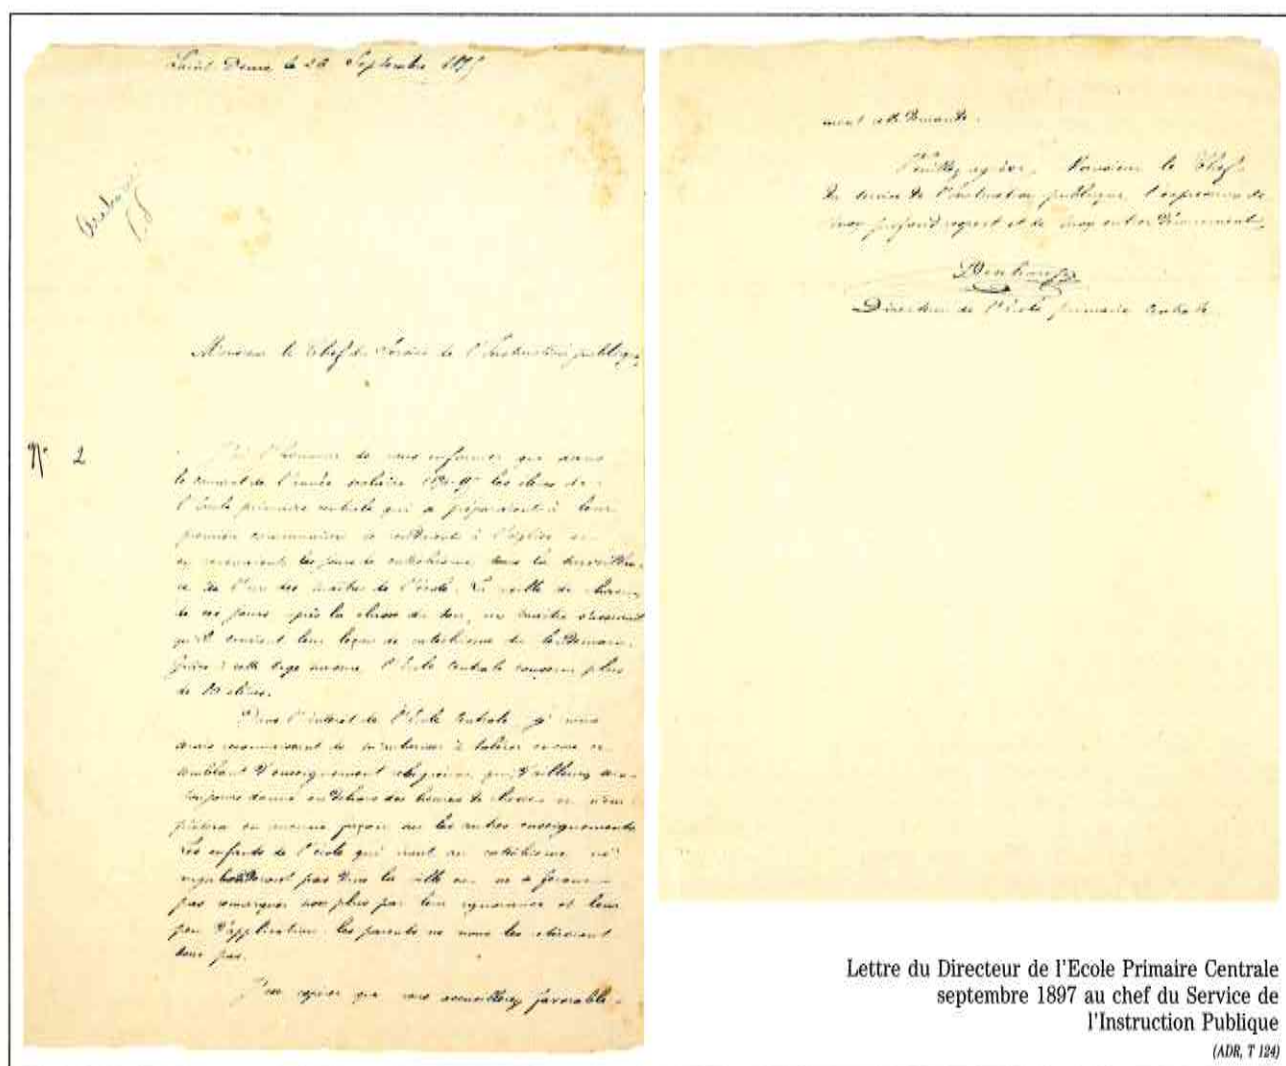 Saint Denis le 26 Septembre 1897
N° 2
Monsieur le Chef du Service de l'Instruction publique,
J'ai l'honneur de vous informer que dans
le courant de l'année scolaire les élèves de
l'école primaire centrale qui se préparaient à leur
première communion se rendaient à l'église et
en revenaient les jours de catéchisme, sous la surveillan-
ce de l'un des maîtres de l'école. La veille de chacun
de ces jours après la classe du soir, un maître s'assurait
qu'ils savaient leur leçon de catéchisme du lendemain.
Grâce à cette sage mesure, l'école centrale conserva plus
de élèves.
Dans l'intérêt de l'École Centrale je vous
serais reconnaissant de m'autoriser à tolérer encore ce
semblant d'enseignement religieux, qui d'ailleurs sera
toujours donné en dehors des heures de classe et n'em-
piètera en aucune façon sur les autres enseignements.
Les enfants de l'école qui vont au catéchisme ne
vagabonderont pas dans la ville et ne se feront
pas remarquer non plus par leur ignorance et leur
peu d'application. Les parents ne nous les retireront
donc pas.
J'ose espérer que vous accueillerez favorable-
ment cette demande.
Veuillez agréer, Monsieur le Chef
du service de l'Instruction publique, l'expression de
mon profond respect et de mon entier dévouement.
Directeur de l'école primaire centrale
Lettre du Directeur de l'Ecole Primaire Centrale
septembre 1897 au chef du Service de
l'Instruction Publique
(ADR, T 124)